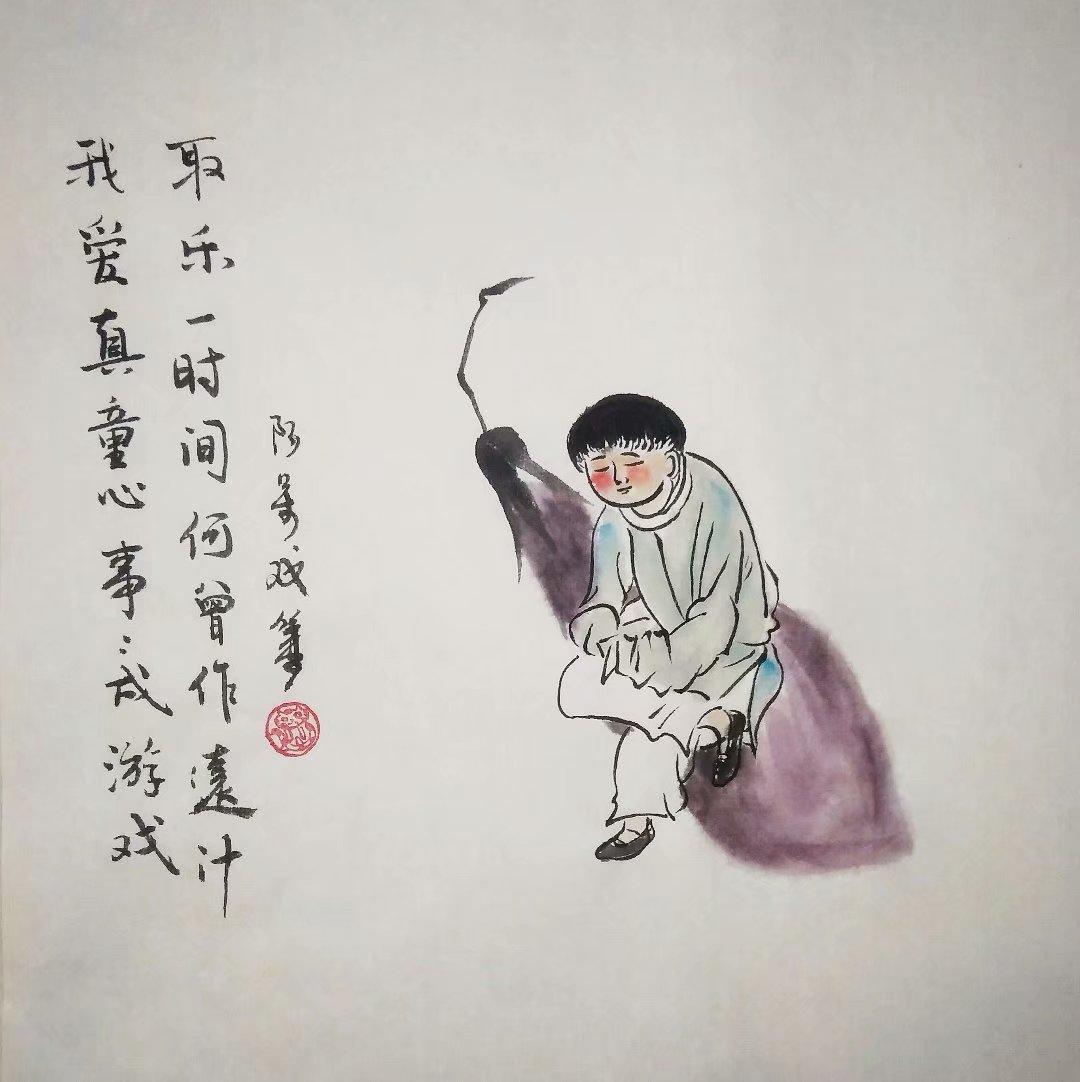 我爱真童心事〻成游戏
取乐一时间何曾作遠计
戏筆